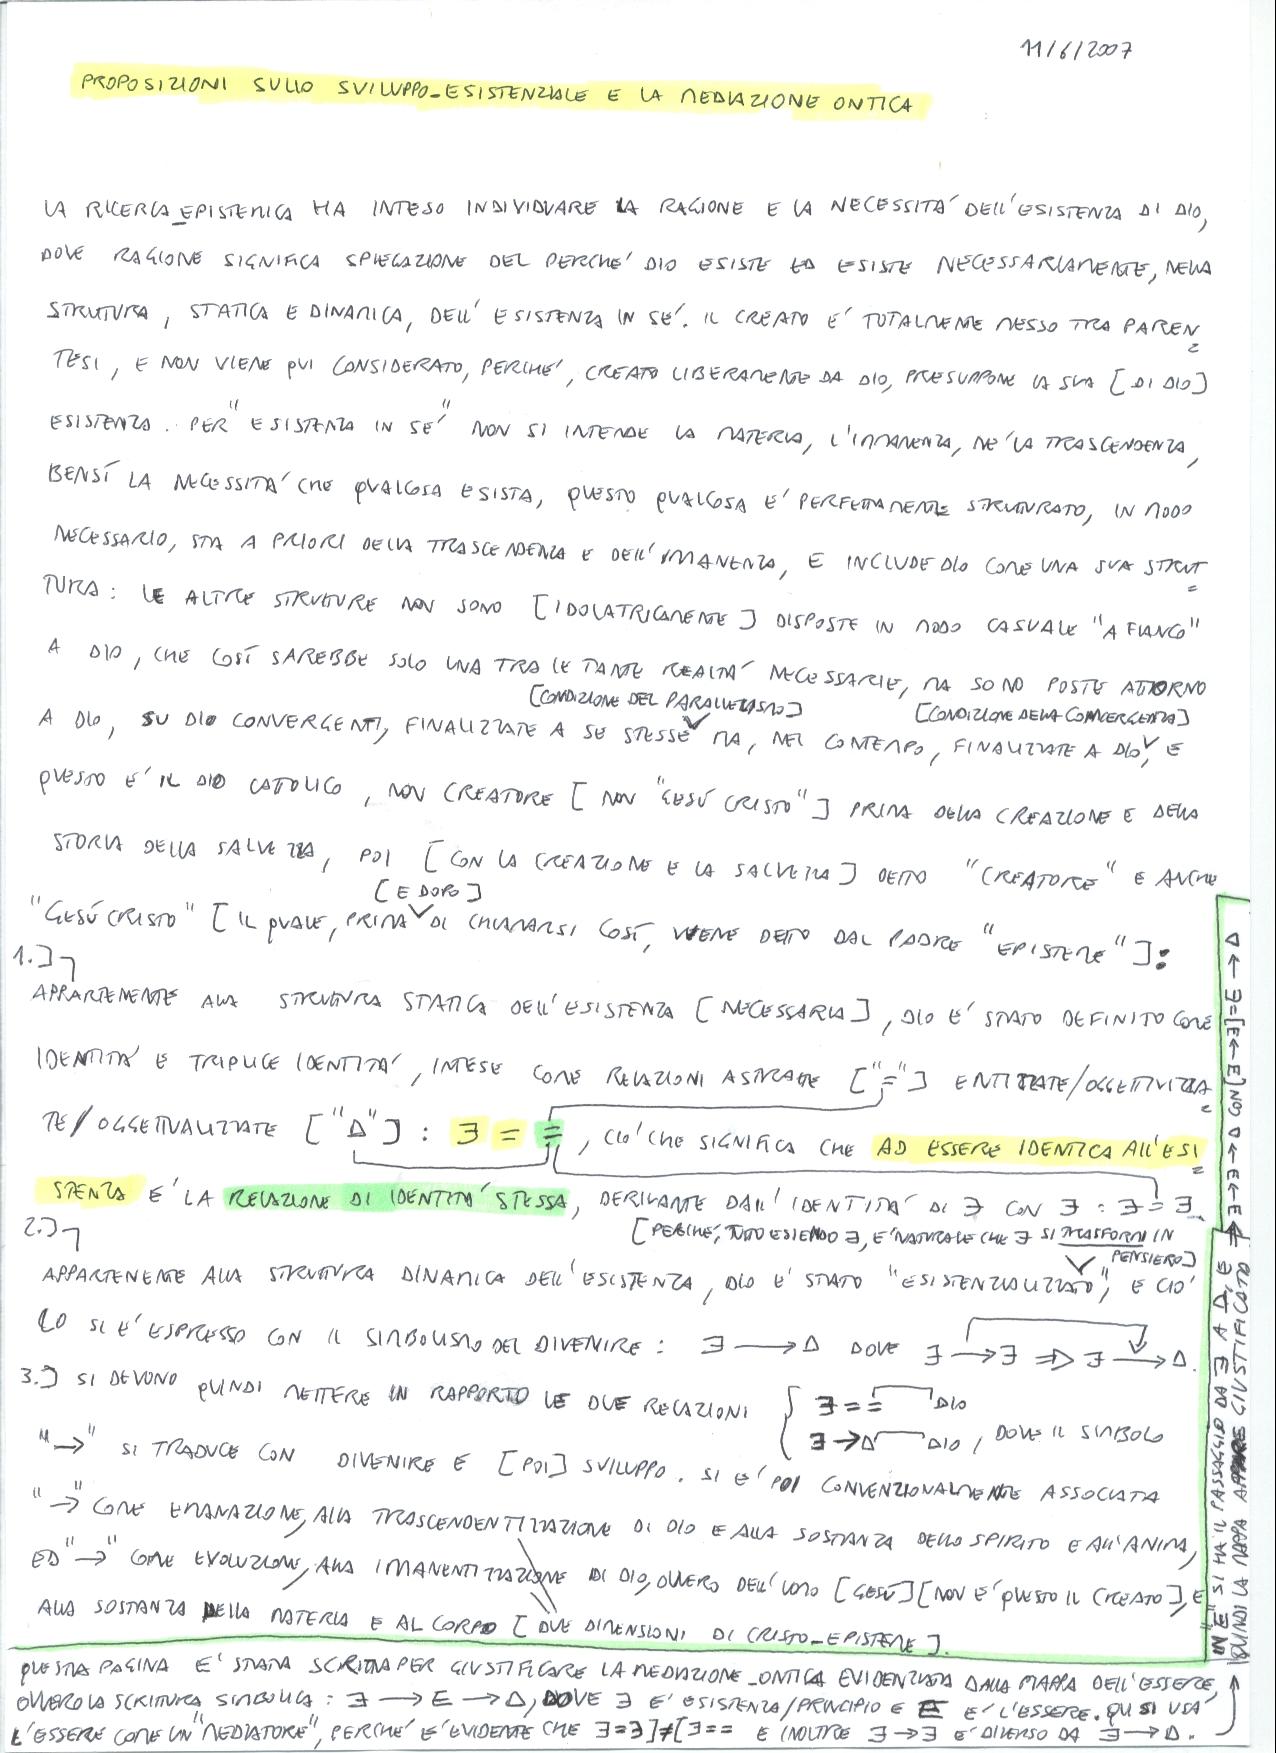 11/6/2007
PROPOSIZIONI SULLO SVILUPPO_ESISTENZIALE E LA MEDIAZIONE ONTICA
LA RICERCA_EPISTEMICA HA INTESO INDIVIDUARE LA RAGIONE E LA NECESSITA' DELL'ESISTENZA DI DIO,
DOVE RAGIONE SIGNIFICA SPIEGAZIONE DEL PERCHE' DIO ESISTE ED ESISTE NECESSARIAMENTE, NELLA
STRUTTURA, STATICA E DINAMICA, DELL'ESISTENZA IN SE'. IL CREATO E' TOTALMENTE MESSO TRA PAREN=
TESI, E NON VIENE QUI CONSIDERATO, PERCHE', CREATO LIBERAMENTE DA DIO, PRESUPPONE LA SUA [DI DIO]
ESISTENZA. PER "ESISTENZA IN SE'" NON SI INTENDE LA MATERIA, L'IMMANENZA, NE' LA TRASCENDENZA,
BENSÍ LA NECESSITA' CHE QUALCOSA ESISTA, QUESTO QUALCOSA E' PERFETTAMENTE STRUTTURATO, IN MODO
NECESSARIO, STA A PRIORI DELLA TRASCENDENZA E DELL'IMMANENZA, E INCLUDE DIO COME UNA SUA STRUT=
TURA: LE ALTRE STRUTTURE NON SONO [IDOLATRICAMENTE] DISPOSTE IN MODO CASUALE "A FIANCO"
A DIO, CHE COSÍ SAREBBE SOLO UNA TRA LE TANTE REALTA' NECESSARIE, MA SONO POSTE ATTORNO
[CONDIZIONE DEL PARALLELISMO] [CONDIZIONE DELLA CONVERGENZA]
A DIO, SU DIO CONVERGENTI, FINALIZZATE A SE STESSE MA, NEL CONTEMPO, FINALIZZATE A DIO, E
QUESTO E' IL DIO CATTOLICO, NON CREATORE [NON "GESÚ CRISTO"] PRIMA DELLA CREAZIONE E DELLA
STORIA DELLA SALVEZZA, POI [CON LA CREAZIONE E LA SALVEZZA] DETTO "CREATORE" E ANCHE
[E DOPO]
"GESÚ CRISTO" [IL QUALE, PRIMA DI CHIAMARSI COSÍ, VIENE DETTO DAL PADRE "EPISTEME"]:
1.]
APPARTENENTE ALLA STRUTTURA STATICA DELL'ESISTENZA [NECESSARIA], DIO E' STATO DEFINITO COME
IDENTITA' E TRIPLICE IDENTITA', INTESE COME RELAZIONI ASTRATTE ["="] ENTITATE/OGGETTIVIZZA=
TE/OGGETTUALIZZATE ["Δ"]: ∃ = =, CIO' CHE SIGNIFICA CHE AD ESSERE IDENTICA ALL'ESI=
STENZA E' LA RELAZIONE DI IDENTITA' STESSA, DERIVANTE DALL'IDENTITA' DI ∃ CON ∃: ∃=∃.
2.]
[PERCHE', TUTTO ESSENDO ∃, E' NATURALE CHE ∃ SI TRASFORMI IN PENSIERO]
APPARTENENTE ALLA STRUTTURA DINAMICA DELL'ESISTENZA, DIO E' STATO "ESISTENZIALIZZATO", E CIO'
LO SI E' ESPRESSO CON IL SIMBOLISMO DEL DIVENIRE: ∃ → Δ DOVE ∃ → ∃ ⇒ ∃ → Δ.
3.] SI DEVONO QUINDI METTERE IN RAPPORTO LE DUE RELAZIONI { ∃ = = DIO
∃ → Δ DIO, DOVE IL SIMBOLO
"→" SI TRADUCE CON DIVENIRE E [POI] SVILUPPO. SI E' POI CONVENZIONALMENTE ASSOCIATA
"→" COME EMANAZIONE, ALLA TRASCENDENTIZZAZIONE DI DIO E ALLA SOSTANZA DELLO SPIRITO E ALL'ANIMA,
ED "→" COME EVOLUZIONE, ALLA IMMANENTIZZAZIONE DI DIO, OVVERO DELL'UOMO [GESÚ][NON E' QUESTO IL CREATO], E
ALLA SOSTANZA DELLA MATERIA E AL CORPO [DUE DIMENSIONI DI CRISTO_EPISTEME].
QUESTA PAGINA E' STATA SCRITTA PER GIUSTIFICARE LA MEDIAZIONE_ONTICA EVIDENZIATA DALLA MAPPA DELL'ESSERE,
OVVERO LA SCRITTURA SIMBOLICA: ∃ → E → Δ, DOVE ∃ E' ESISTENZA/PRINCIPIO E E E' L'ESSERE. QUI SI USA
L'ESSERE COME UN "MEDIATORE", PERCHE' E' EVIDENTE CHE ∃=∃]≠[∃== E INOLTRE ∃ → ∃ E' DIVERSO DA ∃ → Δ.
"IN E" SI HA IL PASSAGGIO DA ∃ A Δ, E
QUINDI LA MAPPA GIUSTIFICATO